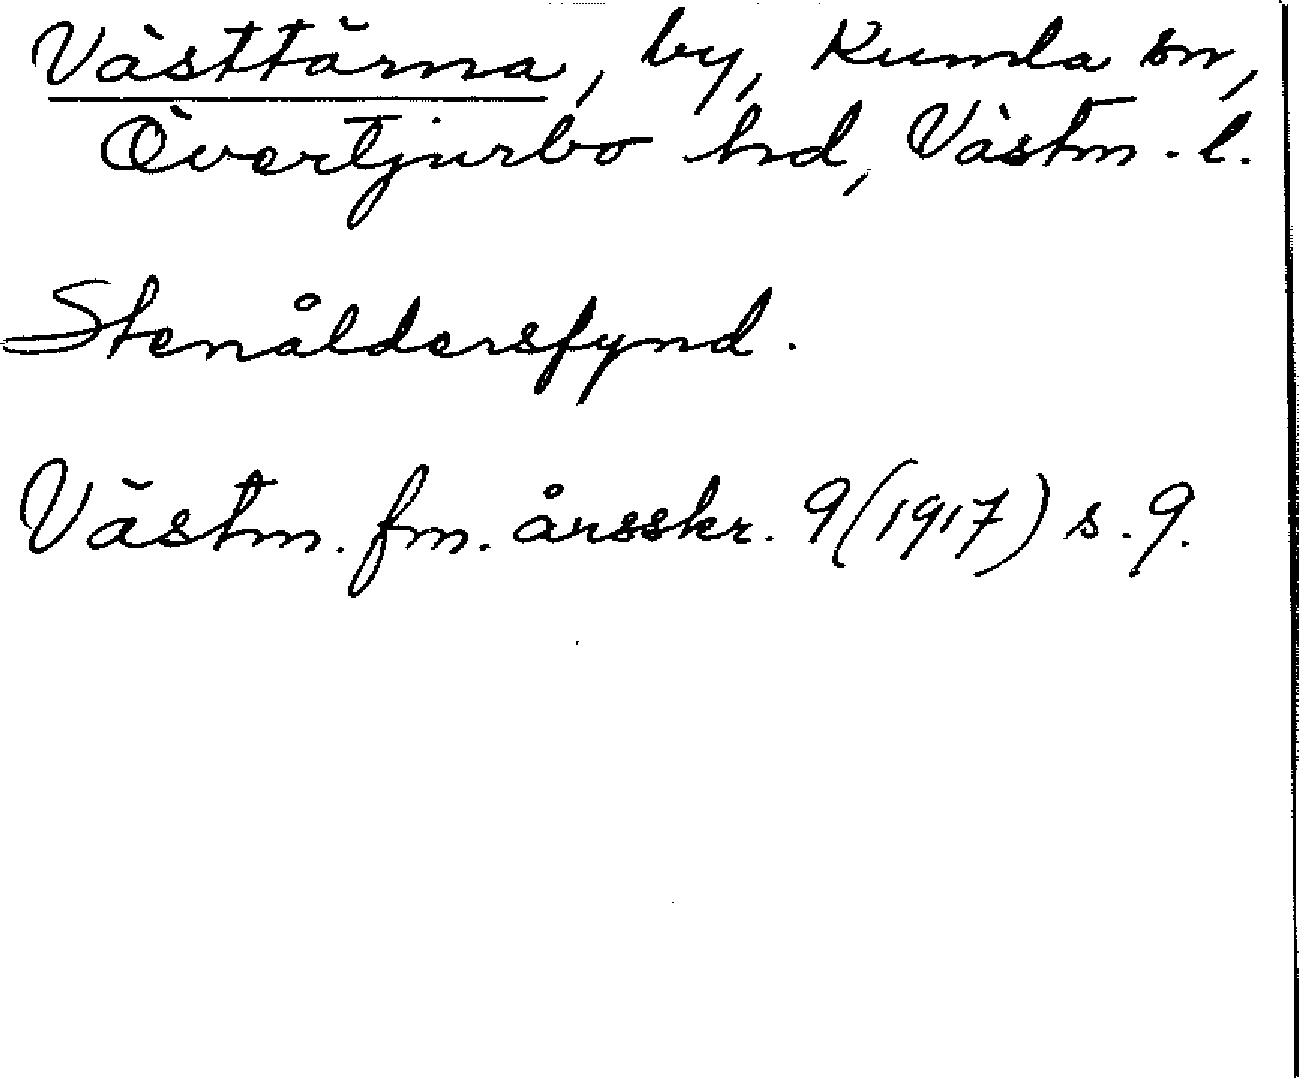 Västtärna, by, Kumla sn,
Övertjurbo hd, Västm. l.
Stenåldersfynd.
Västm. fm. årsskr. 9 (1917) s. 9.